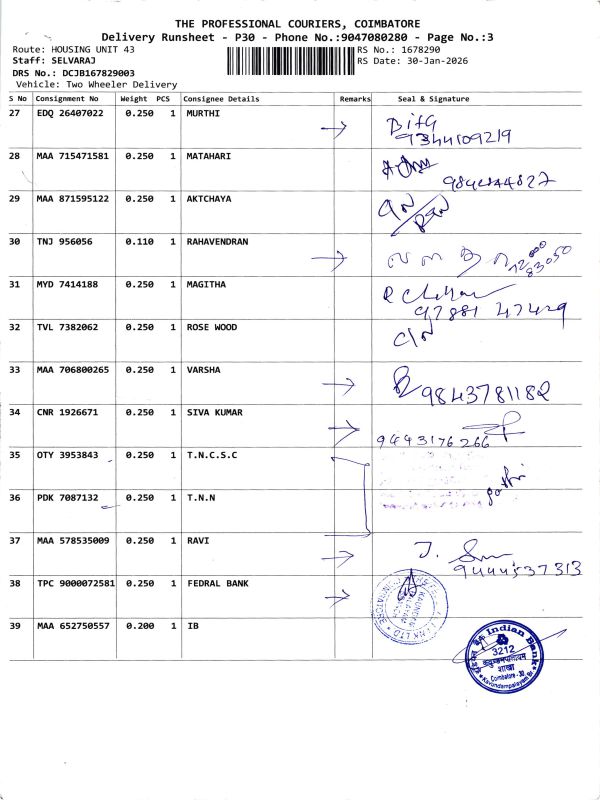 THE PROFESSIONAL COURIERS, COIMBATORE
Delivery Runsheet - P30 - Phone No.:9047080280 - Page No.:3
Route: HOUSING UNIT 43 RS No.: 1678290
Staff: SELVARAJ RS Date: 30-Jan-2026
DRS No.: DCJB167829003
Vehicle: Two Wheeler Delivery
S No Consignment No Weight PCS Consignee Details Remarks Seal & Signature
27 EDQ 26407022 0.250 1 MURTHI
28 MAA 715471581 0.250 1 MATAHARI
29 MAA 871595122 0.250 1 AKTCHAYA
30 TNJ 956056 0.110 1 RAHAVENDRAN
31 MYD 7414188 0.250 1 MAGITHA
97881 47429
32 TVL 7382062 0.250 1 ROSE WOOD
33 MAA 706800265 0.250 1 VARSHA
9843781182
34 CNR 1926671 0.250 1 SIVA KUMAR
9443176266
35 OTY 3953843 0.250 1 T.N.C.S.C
36 PDK 7087132 0.250 1 T.N.N
37 MAA 578535009 0.250 1 RAVI
9444537313
38 TPC 9000072581 0.250 1 FEDRAL BANK
39 MAA 652750557 0.200 1 IB
Indian Bank
3212
शाखा
Coimbatore - 30
Kavundampalayam Br